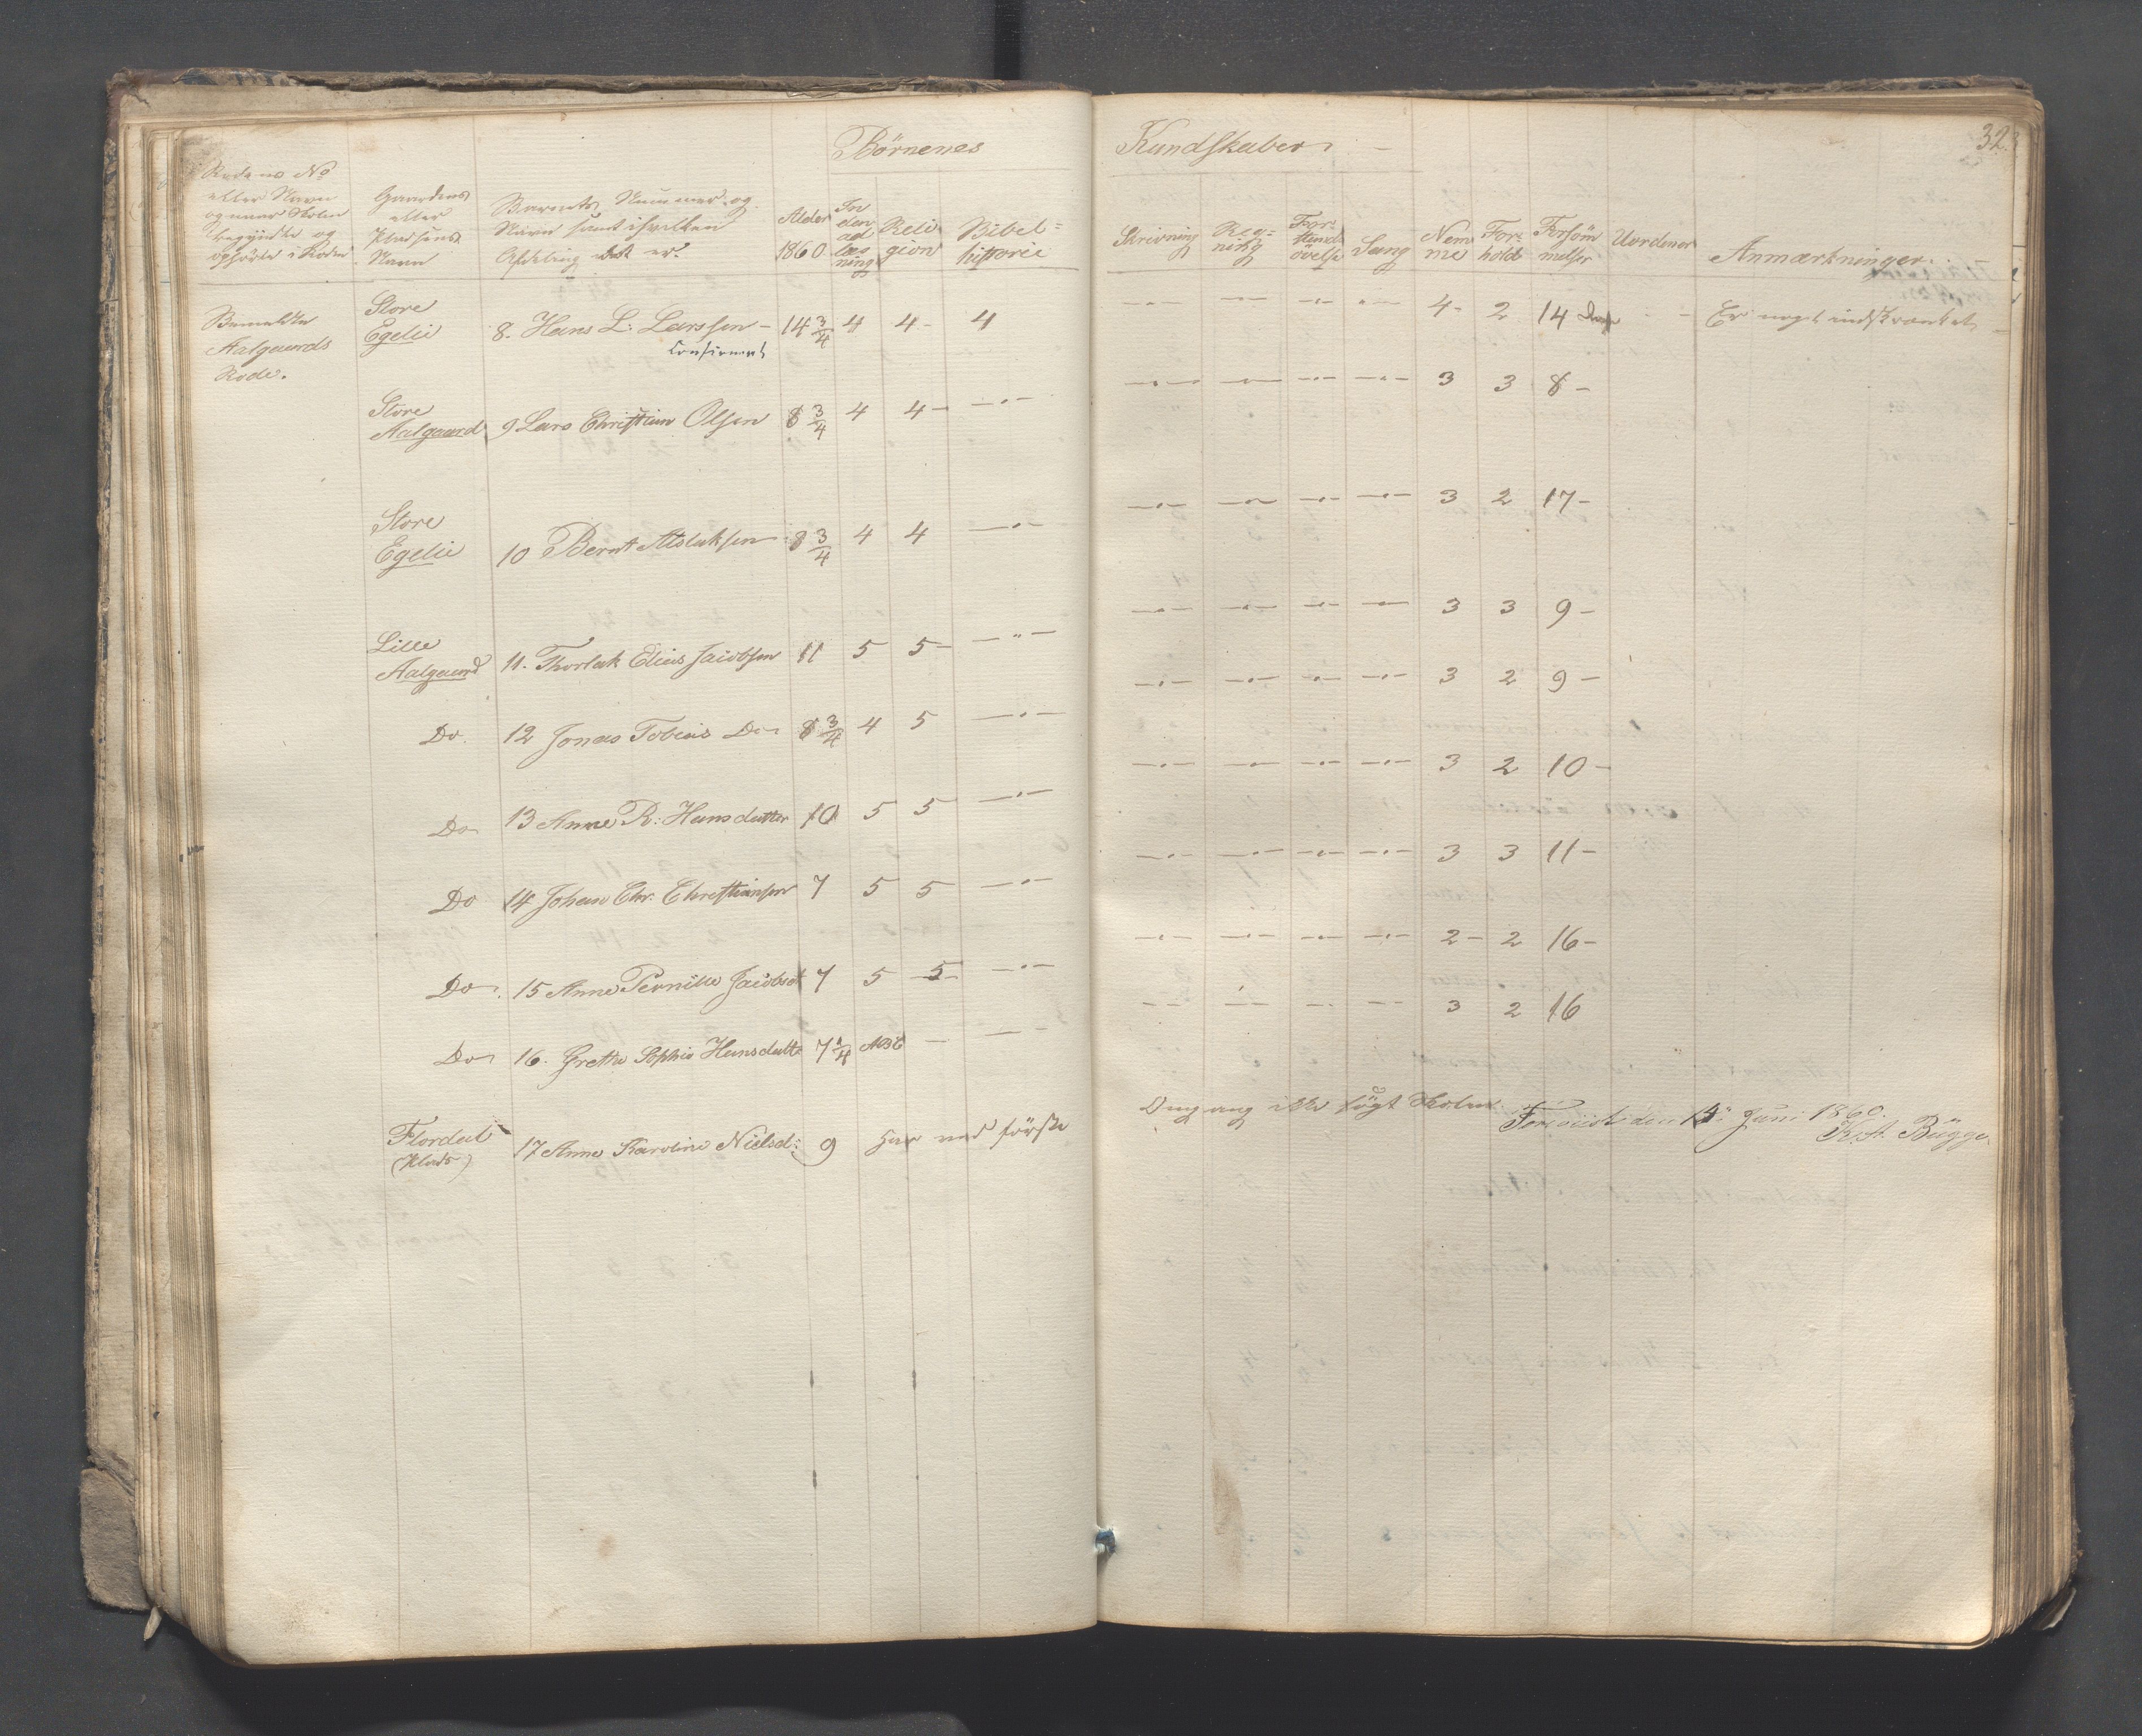 32.
Børnenes Kundskaber
Rodens No
eller Navn
og naar Skolen
begyndte og
ophørte i Roden
Gaardens
eller
Pladsens
Navn
Barnets Nummer og
Navn samt i hvilken
Afdeling det er.
Alder
1860
In
den
ad
læs
ning
Reli
gion
Bibel=
historie
Skrivning
Reg=
ning
For
stands
øvelse
Sang
Nem
me
For
hold
Forsøm
melser
Uordener
Anmærkninger
Bemeldte
Aalgaards
Rode.
Store
Egelie 8. Hans L. Larssen - 14 3/4 4 4 - 4 4 - 2 14 Er noget indskrænket
Confirmert
Store
Aalgaard 9 Lars Christian Olsen 8 3/4 4 4 - 3 3 8 -
Store
Egelie 10 Bernt Atslaksen 8 3/4 4 4 3 2 17 -
Lille
Aalgaard 11. Thorlak Elias Jacobsen 11 5 5 - 3 3 9 -
Do. 12 Jonas Tobias Do 8 3/4 4 5 3 2 9 -
Do 13 Anne R. Hansdatter 10 5 5 3 2 10 -
Do 14 Johan Chr. Christiansen 7 5 5 3 3 11 -
Do 15 Anne Pernille Jacobsd 7 5 5 2 - 2 16 -
Do 16. Grethe Sophie Hansdatte 7 1/4 ABC 3 2 16
Flordal
(Plads) 17 Anne Karoline Nielsd: 9 Har ved første Omgang ikke søgt Skolen.
den 15 Juni 1860.
K. A. Bügge.